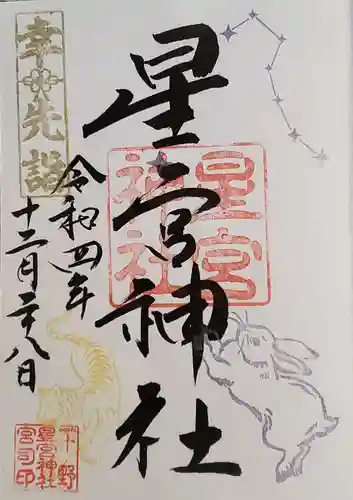 星宮神社
星宮
神社
幸先詣
令和四年
十二月二十八日
下野
星宮神社
宮司印